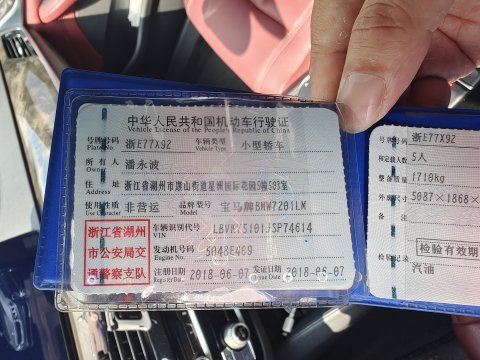 中华人民共和国机动车行驶证
Vehicle License of the People's Republic of China
号牌号码 浙E77X9Z 车辆类型 小型轿车
Plate No. Vehicle Type
所有人 潘永波
Owner
住址 浙江省湖州市康山街道星洲国际花园5幢503室
Address
使用性质 非营运 品牌型号 宝马牌BMW7201LM
Use Character Model
浙江省湖州
市公安局交
通警察支队
车辆识别代号
VIN
发动机号码
Engine No.
注册日期 2018-06-07 发证日期 2018-06-07
Register Date Issue Date
号牌号码 浙E77X9Z
核定载人数 5人
整备质量 1710kg
外廓尺寸 5087×1868×
备注
检验有效期
检验记录
汽油